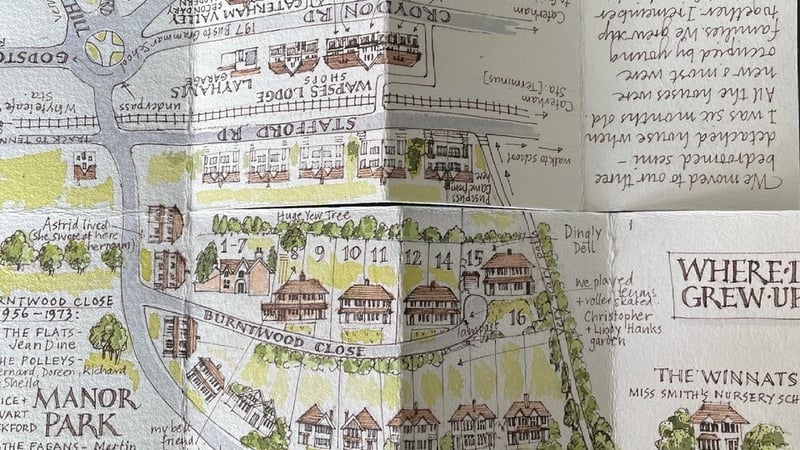 We moved to our three
bedroomed semi-
detached house when
I was six months old.
All the houses were
new & most were
occupied by young
families. We grew up
together I remember
CROYDON RD
CATERHAM VALLEY
Caterham
191 Bus to Grammar School
LAYHAMS
GARAGE
SHOPS
WAPSES LODGE
Caterham
Sta [Terminus]
GODSTO
Whyteleafe
Sta.
underpass
STAFFORD RD
TRACK TO TENN
walk to school
Pusspuss
came from
here
Astrid lived
(she swore at here
Huge Yew Tree
1-7
8
9
10
11
12
14
15
16
Dingly
Dell
we played
tennis
+ roller skated.
Christopher
+ Lindy Hanks
garden
BURNTWOOD CLOSE
WHERE·I
GREW·UP
RNTWOOD CLOSE
1956-1973:
THE FLATS-
Jean Dine
HE POLLEYS-
ernard, Doreen, Richard
Sheila
MANOR
PARK
ICE +
WART
CKFORD
THE FAGANS- Mertin
my best
friend
THE WINNATS
MISS SMITH'S NURSERY SCH